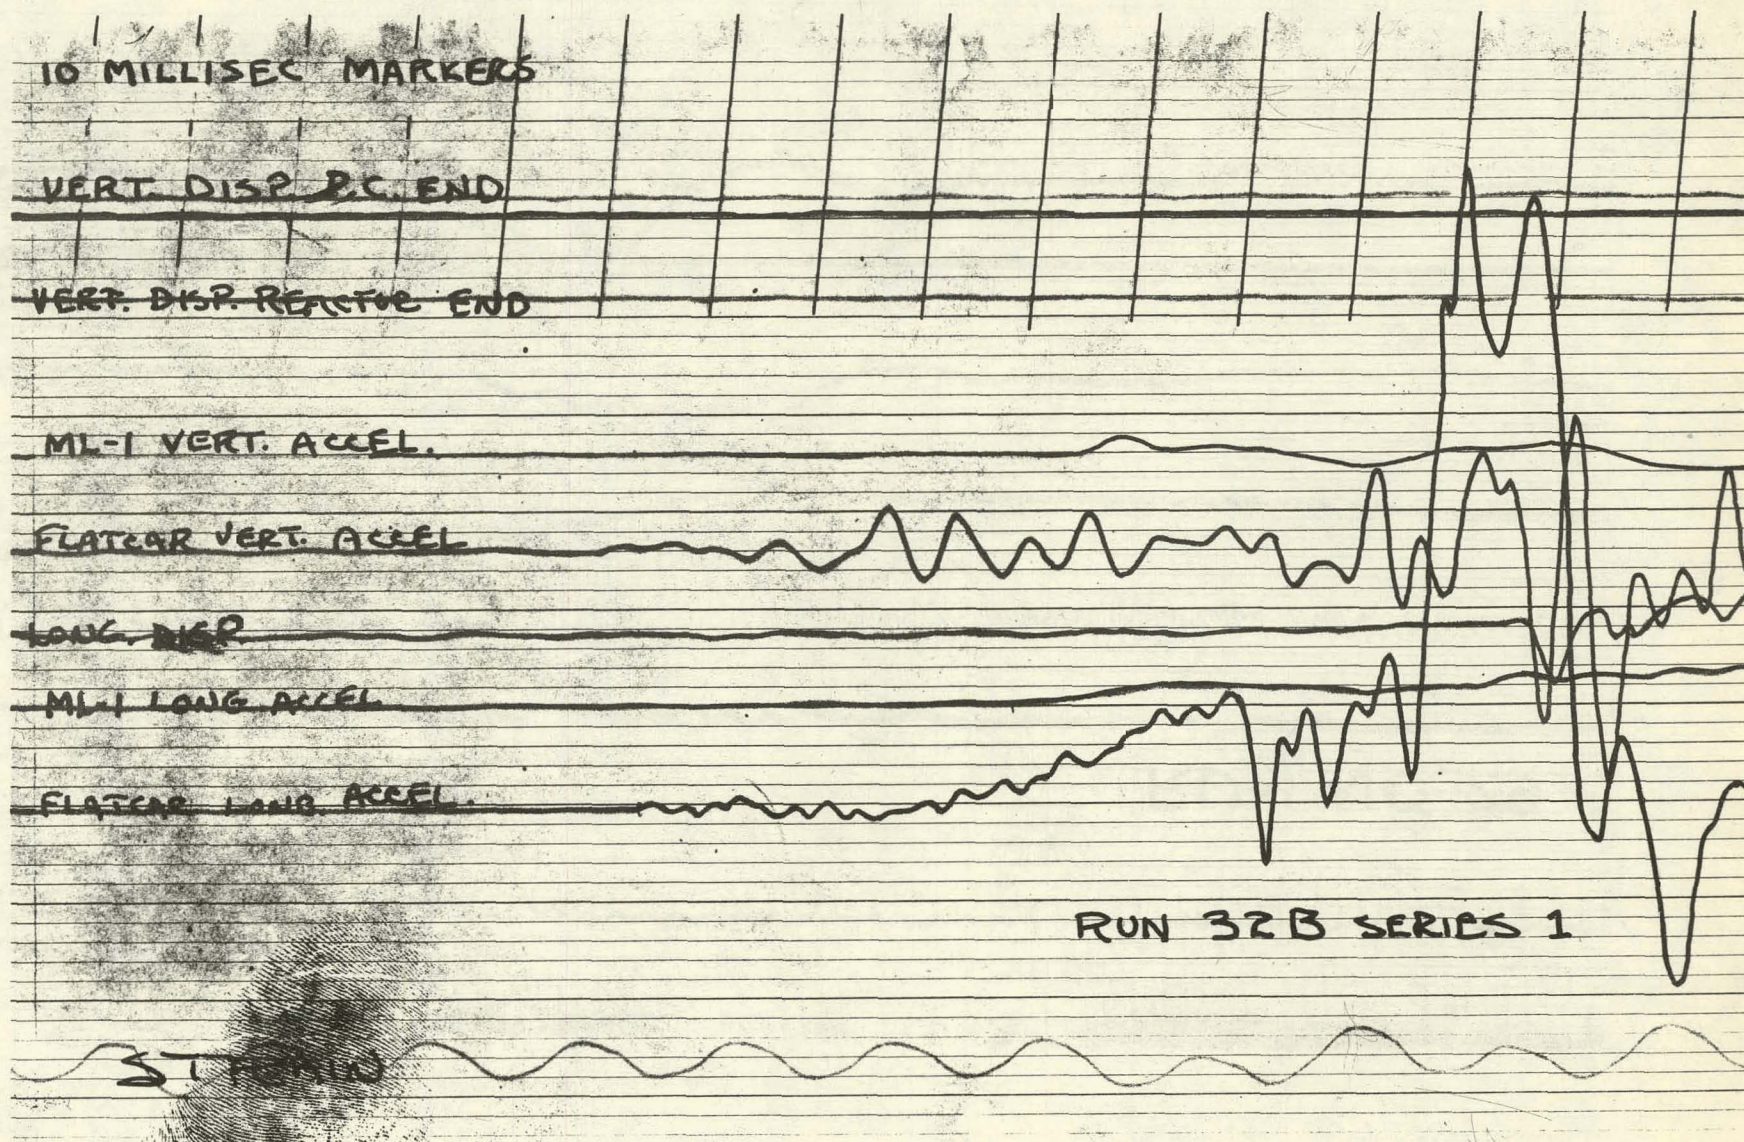 10 MILLISEC MARKERS
VERT. DISP. P.C. END
VERT. DISP. REACTOR END
ML-1 VERT. ACCEL.
FLATCAR VERT. ACCEL
LONG. DISP
ML-1 LONG ACCEL
FLATCAR LONG. ACCEL.
RUN 32B SERIES 1
STRAIN